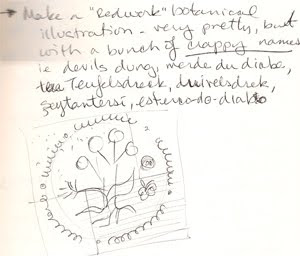 → Make a "Redwork" botanical
illustration - very pretty, but
with a bunch of crappy names
ie devils dung, merde du diabe,
Teufelsdreck, duivelsdrek,
seytantersi, esterco-do-diabo